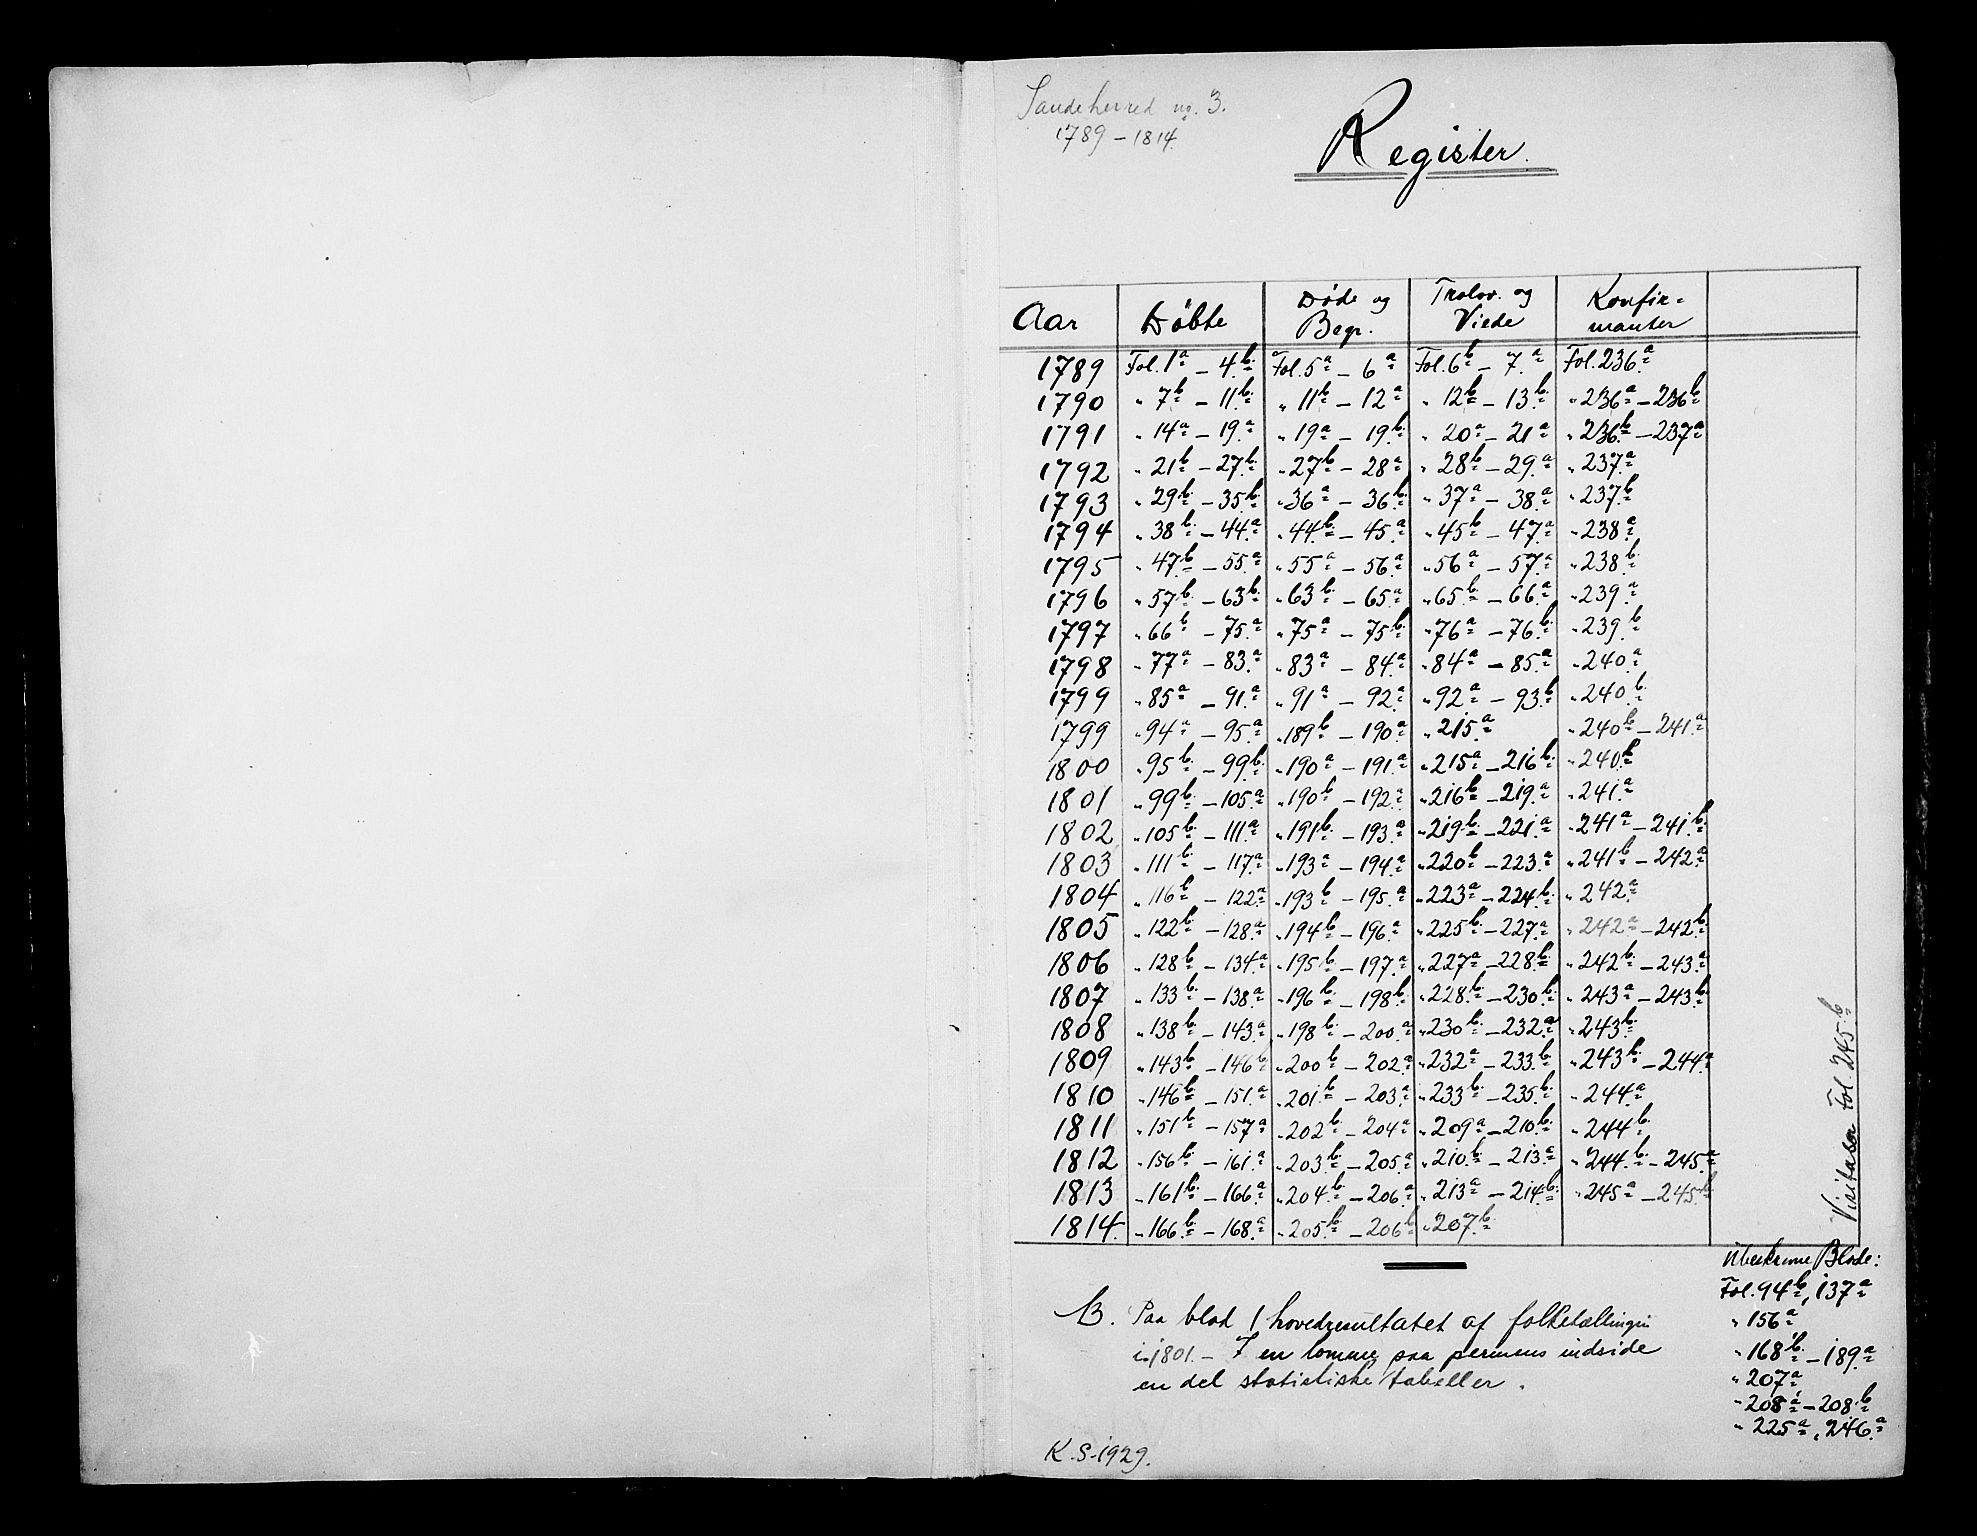 Sandeherred no. 3.
1789 – 1814.
Register.
Aar | Døbte | Døde og Begr. | Trolov. og Viede | Konfir= manter
1789 | Fol. 1a – 4b | Fol. 5a – 6a | Fol. 6b – 7a | Fol. 236a
1790 | " 7b – 11b | " 11b – 12a | " 12b – 13b | " 236a – 236b
1791 | " 14a – 19a | " 19a – 19b | " 20a – 21a | " 236b – 237a
1792 | " 21b – 27b | " 27b – 28a | " 28b – 29a | " 237a
1793 | " 29b – 35b | " 36a – 36b | " 37a – 38a | " 237b
1794 | " 38b – 44a | " 44b – 45a | " 45b – 47a | " 238a
1795 | " 47b – 55a | " 55a – 56a | " 56a – 57a | " 238b
1796 | " 57b – 63b | " 63b – 65a | " 65b – 66a | " 239a
1797 | " 66b – 75a | " 75a – 75b | " 76a – 76b | " 239b
1798 | " 77a – 83a | " 83a – 84a | " 84a – 85a | " 240a
1799 | " 85a – 91a | " 91a – 92a | " 92a – 93b | " 240b
1799 | " 94a – 95a | " 189b – 190a | " 215a | " 240b – 241a
1800 | " 95b – 99b | " 190a – 191a | " 215a – 216b | " 240b
1801 | " 99b – 105a | " 190b – 192a | " 216b – 219a | " 241a
1802 | " 105b – 111a | " 191b – 193a | " 219b – 221a | " 241a – 241b
1803 | " 111b – 117a | " 193a – 194a | " 220b – 223a | " 241b – 242a
1804 | " 116b – 122a | " 193b – 195a | " 223a – 224b | " 242a
1805 | " 122b – 128a | " 194b – 196a | " 225b – 227a | " 242a – 242b
1806 | " 128b – 134a | " 195b – 197a | " 227a – 228b | " 242b – 243a
1807 | " 133b – 138a | " 196b – 198b | " 228b – 230b | " 243a – 243b
1808 | " 138b – 143a | " 198b – 200a | " 230b – 232a | " 243b
1809 | " 143b – 146b | " 200b – 202a | " 232a – 233b | " 243b – 244a
1810 | " 146b – 151a | " 201b – 203a | " 233b – 235b | " 244a
1811 | " 151b – 157a | " 202b – 204a | " 209a – 210b | " 244b
1812 | " 156b – 161a | " 203b – 205a | " 210b – 213a | " 244b – 245a
1813 | " 161b – 166a | " 204b – 206a | " 213a – 214b | " 245a – 245b
1814. | " 166b – 168a | " 205b – 206b | " 207b
Visitaser Fol. 245b
Ubeskrevne Blade:
Fol. 94b, 137a
" 156a
" 168b – 189a
" 207a
" 208a – 208b
" 225a, 246a
B. Paa blad 1 hovedresultatet af folketællingen
i 1801. – I en lomme paa permens indside
en del statistiske tabeller.
K.S. 1929.